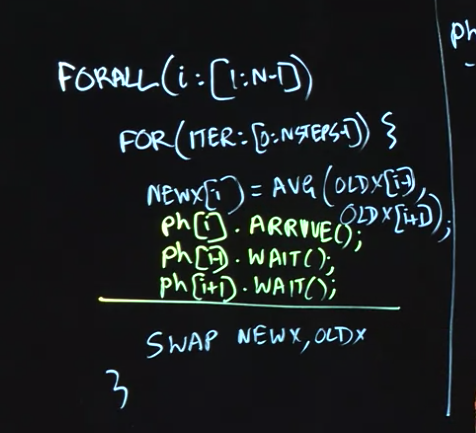 FORALL(i:[1:N-1])
FOR(ITER:[0:NSTEPS-1]) {
NEWX[i] = AVG(OLDX[i-1],
OLDX[i+1]);
ph[i].ARRIVE();
ph[i-1].WAIT();
ph[i+1].WAIT();
SWAP NEWX,OLDX
}
ph